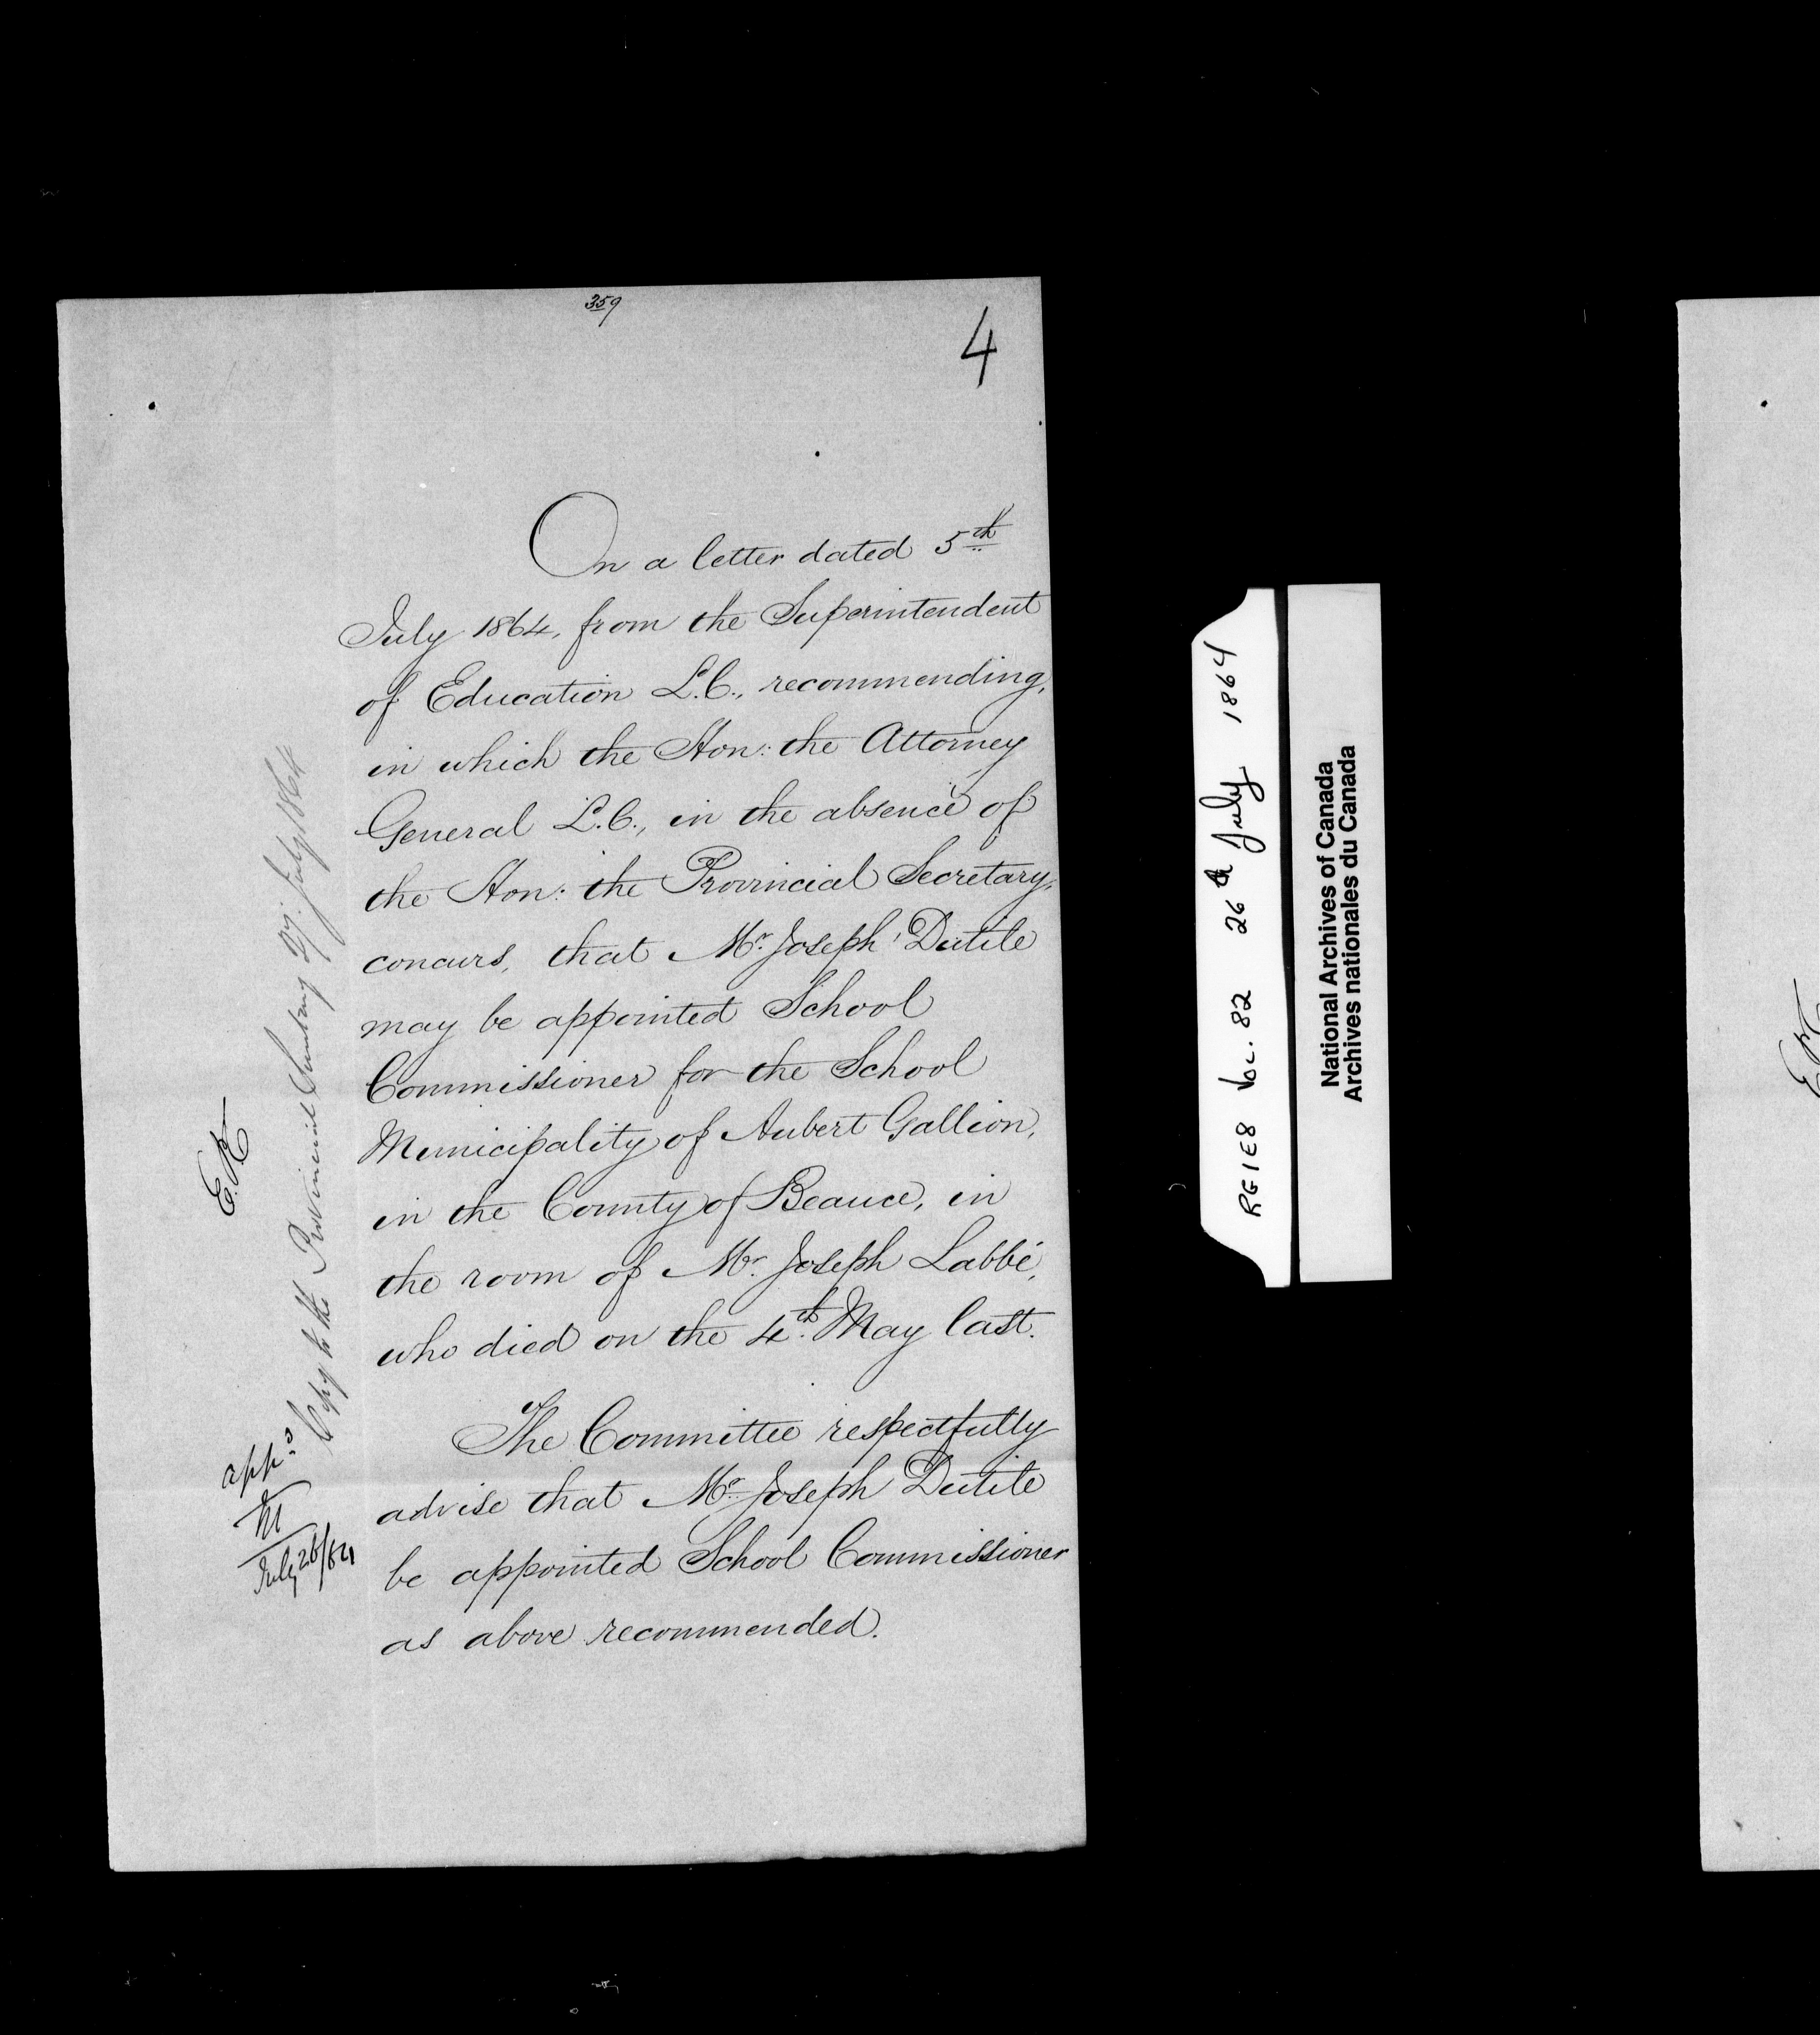 359
4
On a letter dated 5th
July 1864, from the Superintendent
of Education L.C., recommending,
in which the Hon: the Attorney
General L.C., in the absence of
the Hon: the Provincial Secretary,
concurs, that Mr. Joseph Dutile
may be appointed School
Commissioner for the School
Municipality of Aubert Gallion,
in the County of Beauce, in
the room of Mr. Joseph Labbé,
who died on the 4th. May last.
The Committee respectfully
advise that Mr. Joseph Dutile
be appointed School Commissioner
as above recommended.
Copy to the Provincial Secretary 27. July 1864
app.d
M
July 26/64
RG1E8 Vol. 82 26th July 1864
National Archives of Canada
Archives nationales du Canada